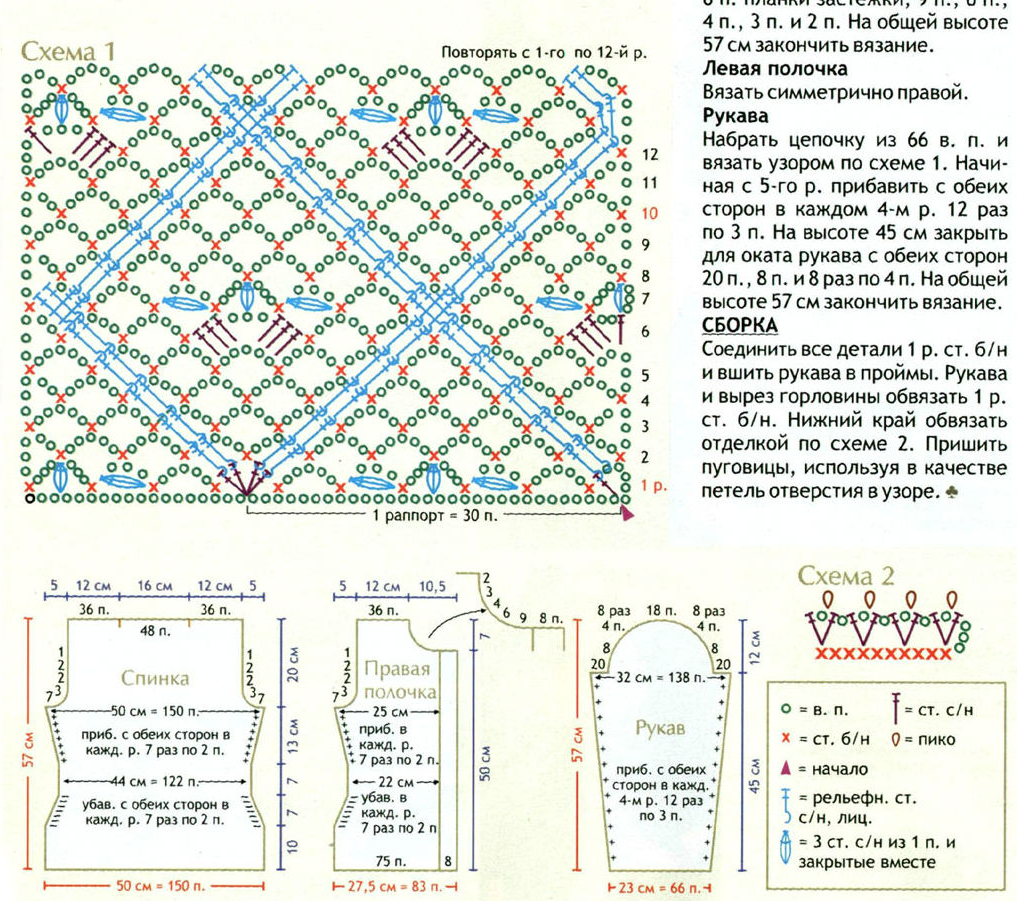 6 п. планки застежки, 9 п., 6 п.,
4 п., 3 п. и 2 п. На общей высоте
57 см закончить вязание.
Левая полочка
Вязать симметрично правой.
Рукава
Набрать цепочку из 66 в. п. и
вязать узором по схеме 1. Начи-
ная с 5-го р. прибавить с обеих
сторон в каждом 4-м р. 12 раз
по 3 п. На высоте 45 см закрыть
для оката рукава с обеих сторон
20 п., 8 п. и 8 раз по 4 п. На общей
высоте 57 см закончить вязание.
СБОРКА
Соединить все детали 1 р. ст. б/н
и вшить рукава в проймы. Рукава
и вырез горловины обвязать 1 р.
ст. б/н. Нижний край обвязать
отделкой по схеме 2. Пришить
пуговицы, используя в качестве
петель отверстия в узоре. ♣
Схема 1
Повторять с 1-го по 12-й р.
12
11
10
9
8
7
6
5
4
3
2
1 р.
1 раппорт = 30 п.
5 12 см 16 см 12 см 5
36 п. 36 п.
48 п.
1
2
2
2
3
7
1
2
2
2
3
7
Спинка
50 см = 150 п.
приб. с обеих сторон в
кажд. р. 7 раз по 2 п.
44 см = 122 п.
убав. с обеих сторон в
кажд. р. 7 раз по 2 п.
50 см = 150 п.
57 см
20 см
13 см
7
7
10
5 12 см 10,5
36 п.
2
3
4
6
9
8 п.
1
2
2
2
3
7
Правая
полочка
25 см
приб. в
кажд. р.
7 раз по 2 п.
22 см
убав. в
кажд. р.
7 раз по 2 п
75 п. 8
27,5 см = 83 п.
7
50 см
8 раз 18 п. 8 раз
4 п. 4 п.
8 8
20 20
32 см = 138 п.
Рукав
приб. с обеих
сторон в кажд.
4-м р. 12 раз
по 3 п.
23 см = 66 п.
57 см
12 см
45 см
Схема 2
= в. п.
= ст. с/н
= ст. б/н
= пико
= начало
= рельефн. ст.
с/н, лиц.
= 3 ст. с/н из 1 п. и
закрытые вместе